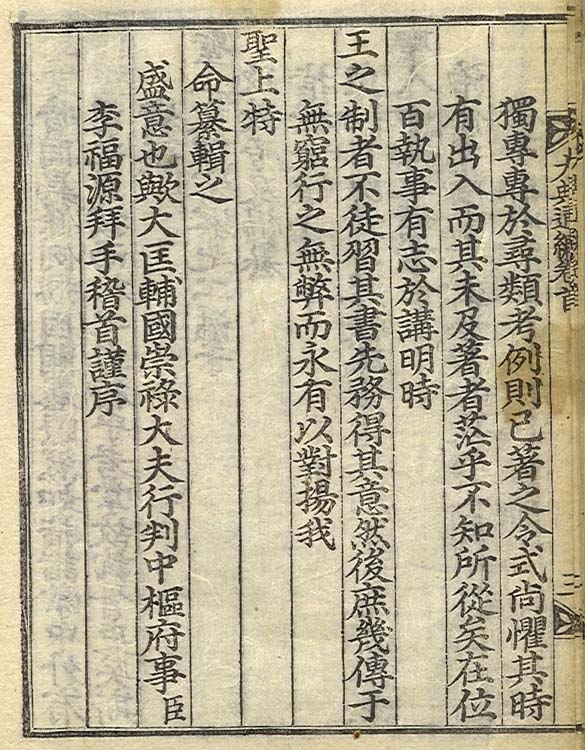 大典通編卷首
三
獨專專於尋類考例則已著之令式尚懼其時
有出入而其未及著者茫乎不知所從矣在位
百執事有志於講明時
王之制者不徒習其書先務得其意然後庶幾傳于
無窮行之無弊而永有以對揚我
聖上特
命纂輯之
盛意也歟大匡輔國崇祿大夫行判中樞府事臣
李福源拜手稽首謹序